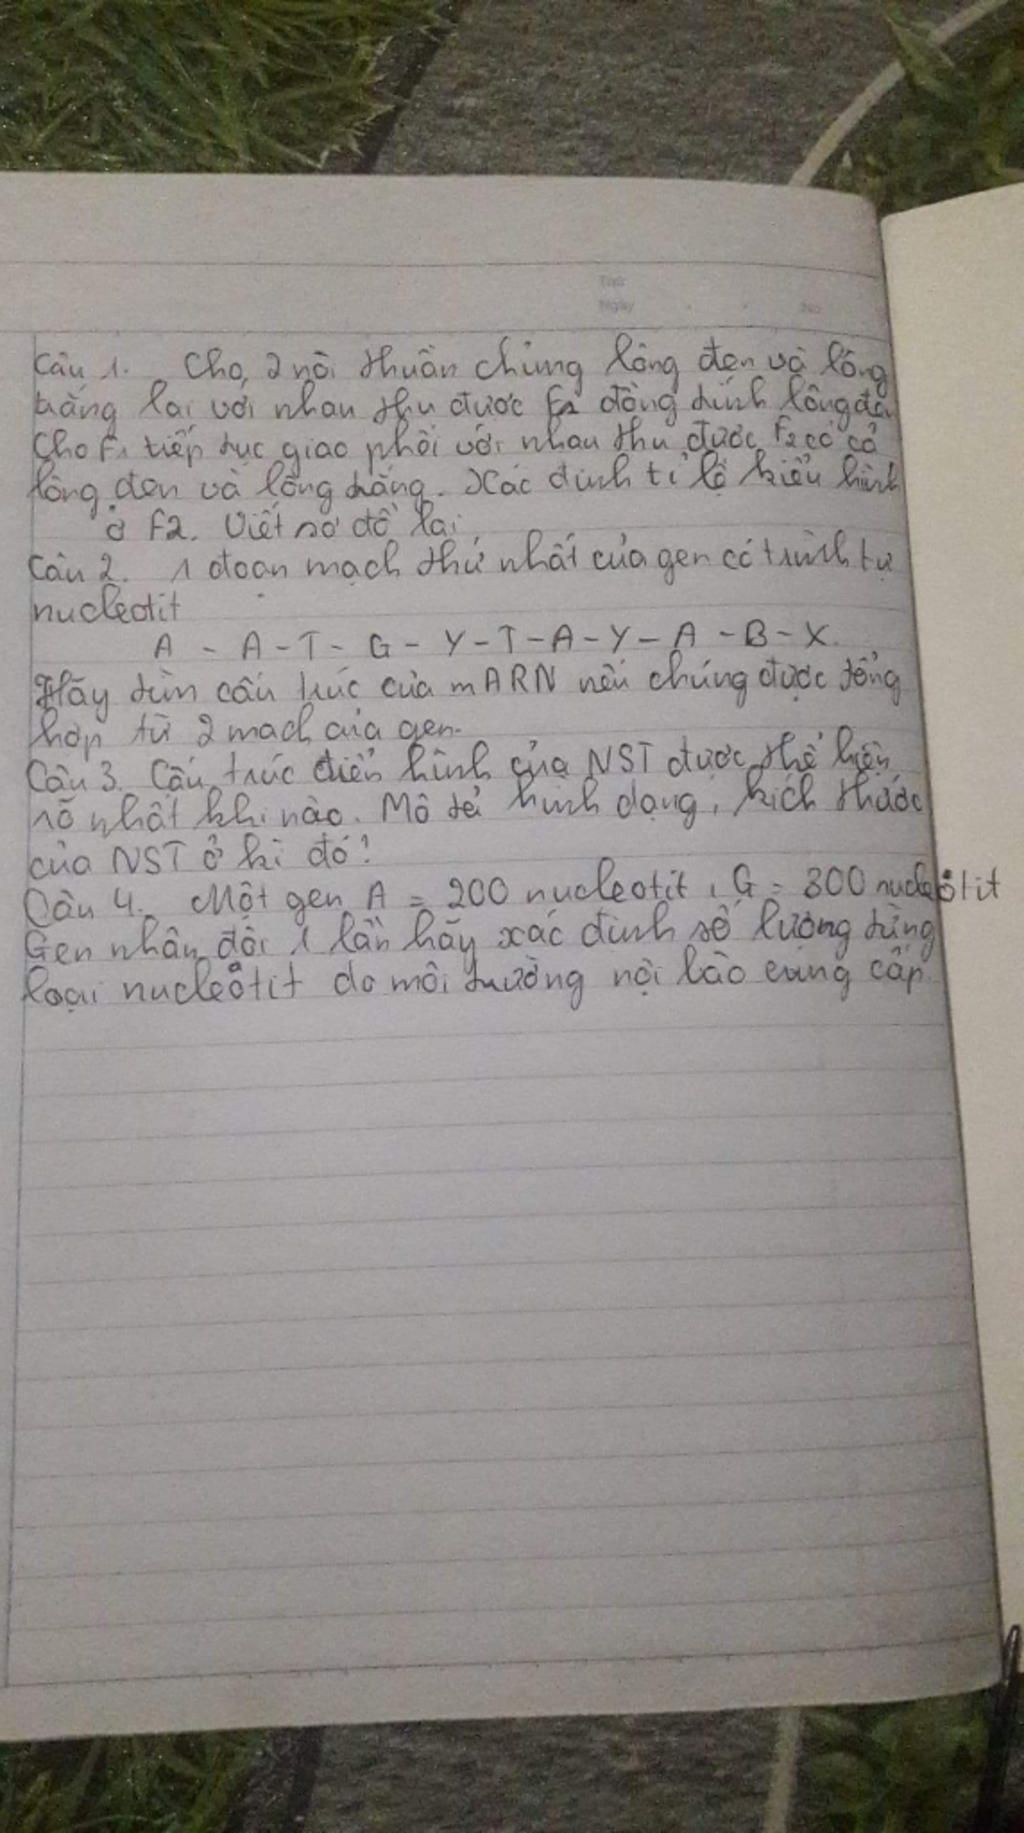 Thứ
Ngày . . No
Câu 1. Cho 2 nòi thuần chủng lông đen và lông
trắng lai với nhau thu được F1 đồng tính lông đen
Cho F1 tiếp tục giao phối với nhau thu được F2 có cả
lông đen và lông trắng. Xác định tỉ lệ kiểu hình
ở F2. Viết sơ đồ lai
Câu 2. 1 đoạn mạch thứ nhất của gen có trình tự
nucleotit
A - A - T - G - Y - T - A - Y - A - B - X.
Hãy tìm cấu trúc của mARN nếu chúng được tổng
hợp từ 2 mạch của gen.
Câu 3. Cấu trúc điển hình của NST được thể hiện
rõ nhất khi nào. Mô tả hình dạng, kích thước
của NST ở kì đó?
Câu 4. Một gen A = 200 nucleotit, G = 300 nucleôtit
Gen nhân đôi 1 lần hãy xác định số lượng từng
loại nucleôtit do môi trường nội bào cung cấp